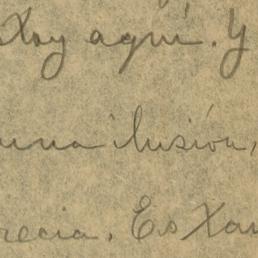 stoy aquí. Y
una ilusión,
recia. Es tan